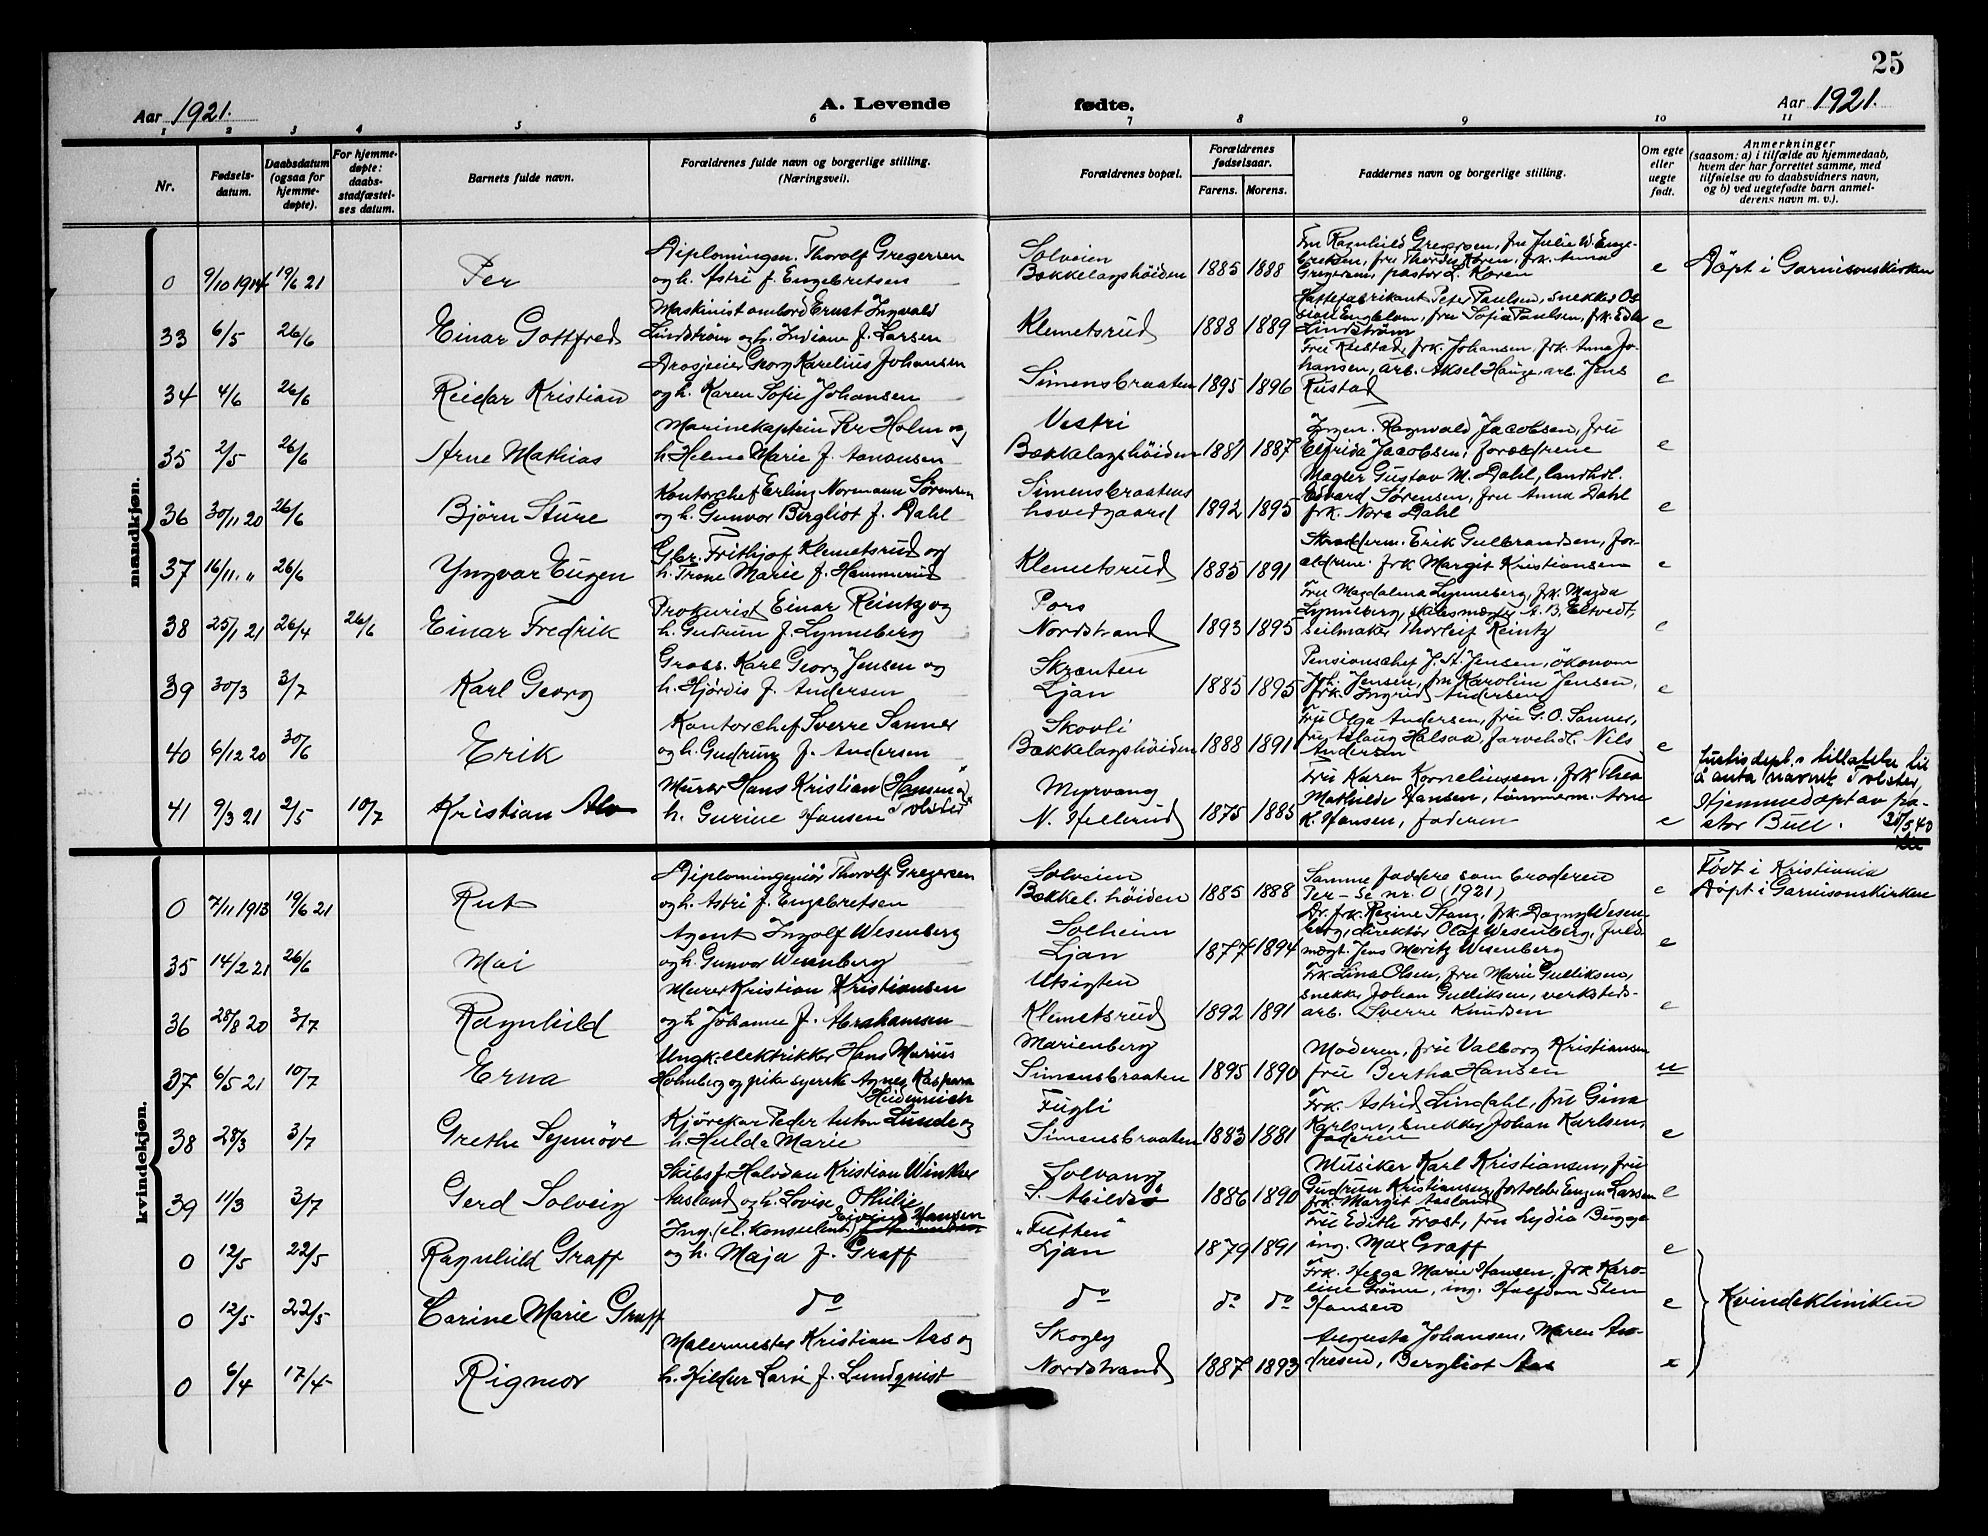 25
Aar 1921.
A. Levende
fødte.
Aar 1921.
1 2 3 4 5 6 7 8 9 10 11
Nr.
Fødsels-
datum.
Daabsdatum
(ogsaa for
hjemme-
døpte).
For hjemme-
døpte:
daabs-
stadfæstel-
ses datum.
Barnets fulde navn.
Forældrenes fulde navn og borgerlige stilling.
(Næringsvei).
Forældrenes bopæl.
Forældrenes
fødselsaar.
Farens. Morens.
Faddernes navn og borgerlige stilling.
Om egte
eller
uegte
født.
Anmerkninger
(saasom: a) i tilfælde av hjemmedaab,
hvem der har forrettet samme, med
tilføielse av to daabsvidners navn,
og b) ved uegtefødte barn anmel-
derens navn m. v.).
mandkjøn.
0 9/10 1914 19/6 21 Per
Diplomingen. Thorolf Gregersen
og h. Astri f. Engebretsen
Solveien
Bækkelagshöiden 1885 1888
Fru Ragnhild Gregersen, fru Julie W. Enge-
bretsen, fru Thordis Koren, frk. Anna
Gregersen, pastor L. Koren
e Döpt i Garnisonskirken
33 6/5 26/6 Einar Gottfred
Maskinist ombord Ernst Ingvald
Lindström og h. Indiane f. Larsen
Klemetsrud 1888 1889
Hattefabrikant Peter Paulsen, snekker
Engblom, fru Sofie Paulsen, frk. Edle
Lindström
e
34 4/6 26/6 Reidar Kristian
Drosjeeier Georg Karelius Johansen
og h. Karen Sofie Johansen
Simensbraaten 1895 1896
Fru Rustad, frk. Johansen, frk. Anna Jo-
hansen, arb. Aksel Hauge, arb. Jens
Rustad
e
35 2/5 26/6 Arne Mathias
Marinekaptein Per Holm og
h. Helene Marie f. Aanonsen
Vestri
Bækkelagshöiden 1881 1887
Ingen. Ragnvald Jacobsen, fru
Elfrida Jacobsen, forældrene
e
36 30/11 20 26/6 Björn Sture
Kontorchef Erling Normann Sörensen
og h. Gunvor Bergliot f. Dahl
Simensbraatens
hovedgaard 1892 1895
Mægler Gustav M. Dahl, landhdl.
Edvard Sörensen, fru Anna Dahl
frk. Nora Dahl
e
37 16/11 „ 26/6 Yngvar Eugen
Gbr. Frithjof Klemetsrud og
h. Trone Marie f. Hammerud
Klemetsrud 1885 1891
Skrædderm. Erik Gulbrandsen, for-
ældrene. frk Margit Kristiansen
e
38 25/1 21 26/4 26/6 Einar Fredrik
Prokurist Einar Reintz og
h. Gudrun f. Lynneberg
Fors
Nordstrand 1893 1895
Fru Magdalena Lynneberg, frk. Magda
Lynneberg, skibsmægler A. B. Eltvedt,
seilmaker Thorleif Reintz
e
39 30/3 3/7 Karl Georg
Gross. Karl Georg Jensen og
h. Hjördis f. Andersen
Skrænten
Ljan 1885 1895
Pensionschef J. St. Jensen, ökonom
Joh. Jensen, fru Karoline Jensen,
frk. Ingrid Andersen
e
40 6/12 20 30/6 Erik
Kontorchef Sverre Sanner
og h. Gudrun f. Andersen
Skovli
Bækkelagshöiden 1888 1891
Fru Olga Andersen, fru G. O. Sanner,
fru Aslaug Halsaa, farvehdl. Nils
Andersen
e
41 9/3 21 2/5 10/7 Kristian Alv
Murer Hans Kristian Hansen og
h. Gurine Hansen Tolstad
Myrvang
N. Hellerud 1875 1885
Fru Karen Korneliussen, frk Thea
Mathilde Hansen, tömmerm. Arne
K. Hansen, faderen
e
Justisdept.s tillatelse til
å anta navnet Tolster,
Hjemmedöpt av pa-
stor Bull. 28/5 40
kvindekjøn.
0 7/11 1913 19/6 21 Rut
Diplomingeniör Thorolf Gregersen
og h. Astri f. Engebretsen
Solveien
Bækkel. höiden 1885 1888
Samme faddere som broderen
Per – Se nr. 0 (1921)
e
Födt i Kristiania
Döpt i Garnisonskirken
35 14/2 21 26/6 Mai
Agent Ingolf Wesenberg
og h. Gunvor Wesenberg
Solheim
Ljan 1877 1894
Dr. frk. Regine Stang, frk. Dagny Wesen-
berg, direktör Olaf Wesenberg, fuld-
mægt. Jens Moritz Wesenberg
e
36 28/8 20 3/7 Ragnhild
Murer Kristian Kristiansen
og h. Johanne f. Abrahamsen
Utsigten
Klemetsrud 1892 1891
Frk Lina Olsen, fru Marie Gulliksen,
snekker Johan Gulliksen, verksteds-
arb. Sverre Knudsen
e
37 6/5 21 10/7 Erna
Ungk. elektriker Hans Marius
Holmberg og pike syerske Agnes Kaspara
Heidenreich
Marienberg
Simensbraaten 1895 1890
Moderen, fru Valborg Kristiansen
fru Bertha Hansen
u
38 28/3 3/7 Grethe Synnöve
Kjörekar Peder Anton Lunde og
h. Hulda Marie
Fugli
Simensbraaten 1883 1881
Frk. Astrid Lindahl, fru Gina
Karlsen, snekker Johan Karlsen,
faderen
e
39 11/3 3/7 Gerd Solveig
Skibsf. Halvdan Kristian Winther
Aasland og h. Lovise Othilie
Solvang
S. Abildsö 1886 1890
Musiker Karl Kristiansen, fru
Gudrun Kristiansen, forholder Eugen Larsen
frk. Margit Aasland
e
0 12/5 22/5 Ragnhild Graff
Ing. (el. konsulent) Eivind Hansen
og h. Maja f. Graff
„Tutten"
Ljan 1879 1891
Fru Edith Frost, fru Lydia Bugge
ing. Max Graff
e
0 12/5 22/5 Carine Marie Graff
do
do do do
Frk. Helga Marie Hansen, frk Karo-
line Grönn, ing. Halfdan Steen
Hansen
e Kvindekliniken
0 6/4 17/4 Rigmor
Malermester Kristian Aas og
h. Hildur Larie f. Lundqvist
Skogly
Nordstrand 1887 1893
Augusta Johansen, Maren An-
dresen, Bergliot Aas
e